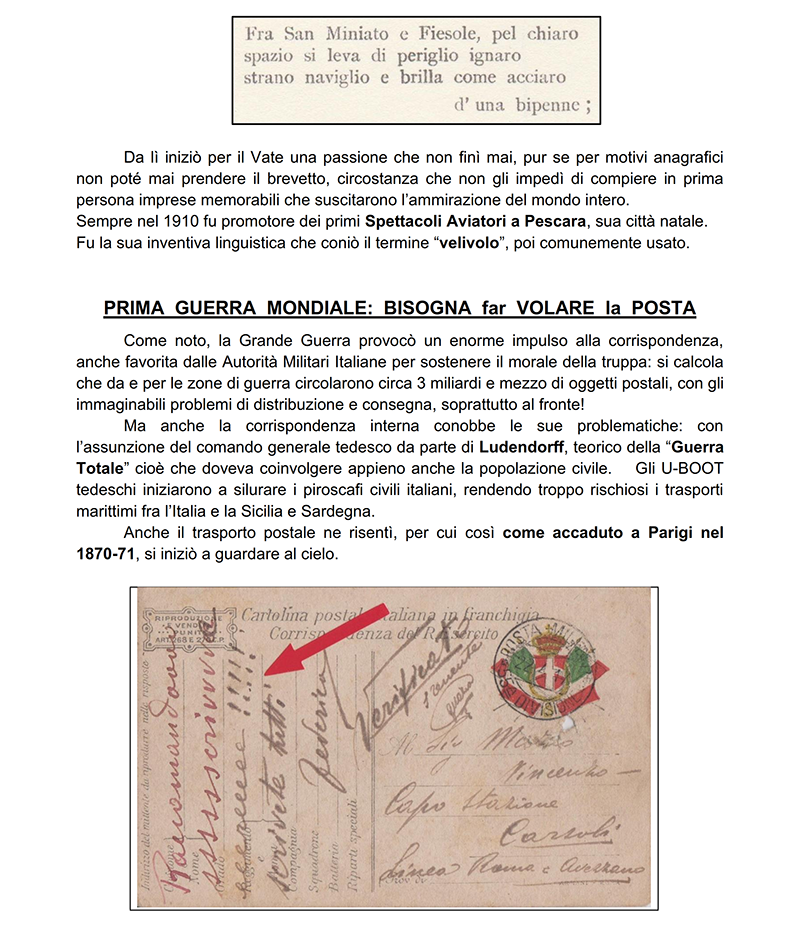 Fra San Miniato e Fiesole, pel chiaro
spazio si leva di periglio ignaro
strano naviglio e brilla come acciaro
d' una bipenne ;
Da lì iniziò per il Vate una passione che non finì mai, pur se per motivi anagrafici
non poté mai prendere il brevetto, circostanza che non gli impedì di compiere in prima
persona imprese memorabili che suscitarono l'ammirazione del mondo intero.
Sempre nel 1910 fu promotore dei primi Spettacoli Aviatori a Pescara, sua città natale.
Fu la sua inventiva linguistica che coniò il termine “velivolo”, poi comunemente usato.
PRIMA GUERRA MONDIALE: BISOGNA far VOLARE la POSTA
Come noto, la Grande Guerra provocò un enorme impulso alla corrispondenza,
anche favorita dalle Autorità Militari Italiane per sostenere il morale della truppa: si calcola
che da e per le zone di guerra circolarono circa 3 miliardi e mezzo di oggetti postali, con gli
immaginabili problemi di distribuzione e consegna, soprattutto al fronte!
Ma anche la corrispondenza interna conobbe le sue problematiche: con
l'assunzione del comando generale tedesco da parte di Ludendorff, teorico della “Guerra
Totale” cioè che doveva coinvolgere appieno anche la popolazione civile. Gli U-BOOT
tedeschi iniziarono a silurare i piroscafi civili italiani, rendendo troppo rischiosi i trasporti
marittimi fra l'Italia e la Sicilia e Sardegna.
Anche il trasporto postale ne risentì, per cui così come accaduto a Parigi nel
1870-71, si iniziò a guardare al cielo.
RIPRODUZIONE
E VENDITA
PUNITE
Cartolina postale italiana in franchigia
Corrispondenza del R. Esercito
POSTA MILITARE
Indirizzo del mittente da riprodurre nelle risposte
Cognome
Nome
Grado
Reggimento
Compagnia
Squadrone
Batteria
Riparti speciali
scrivete tutti
Federico
Verificato
Al Sig
Vincenzo
Capo Stazione
Carsoli
Linea Roma e Avezzano